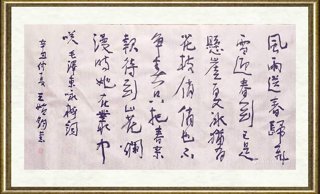 風雨送春歸飛
雪迎春到已是
懸崖百丈冰猶有
花枝俏俏也不
爭春只把春來
報待到山花爛
漫時她在叢中
咲 毛澤東詠梅詞
辛丑仲夏